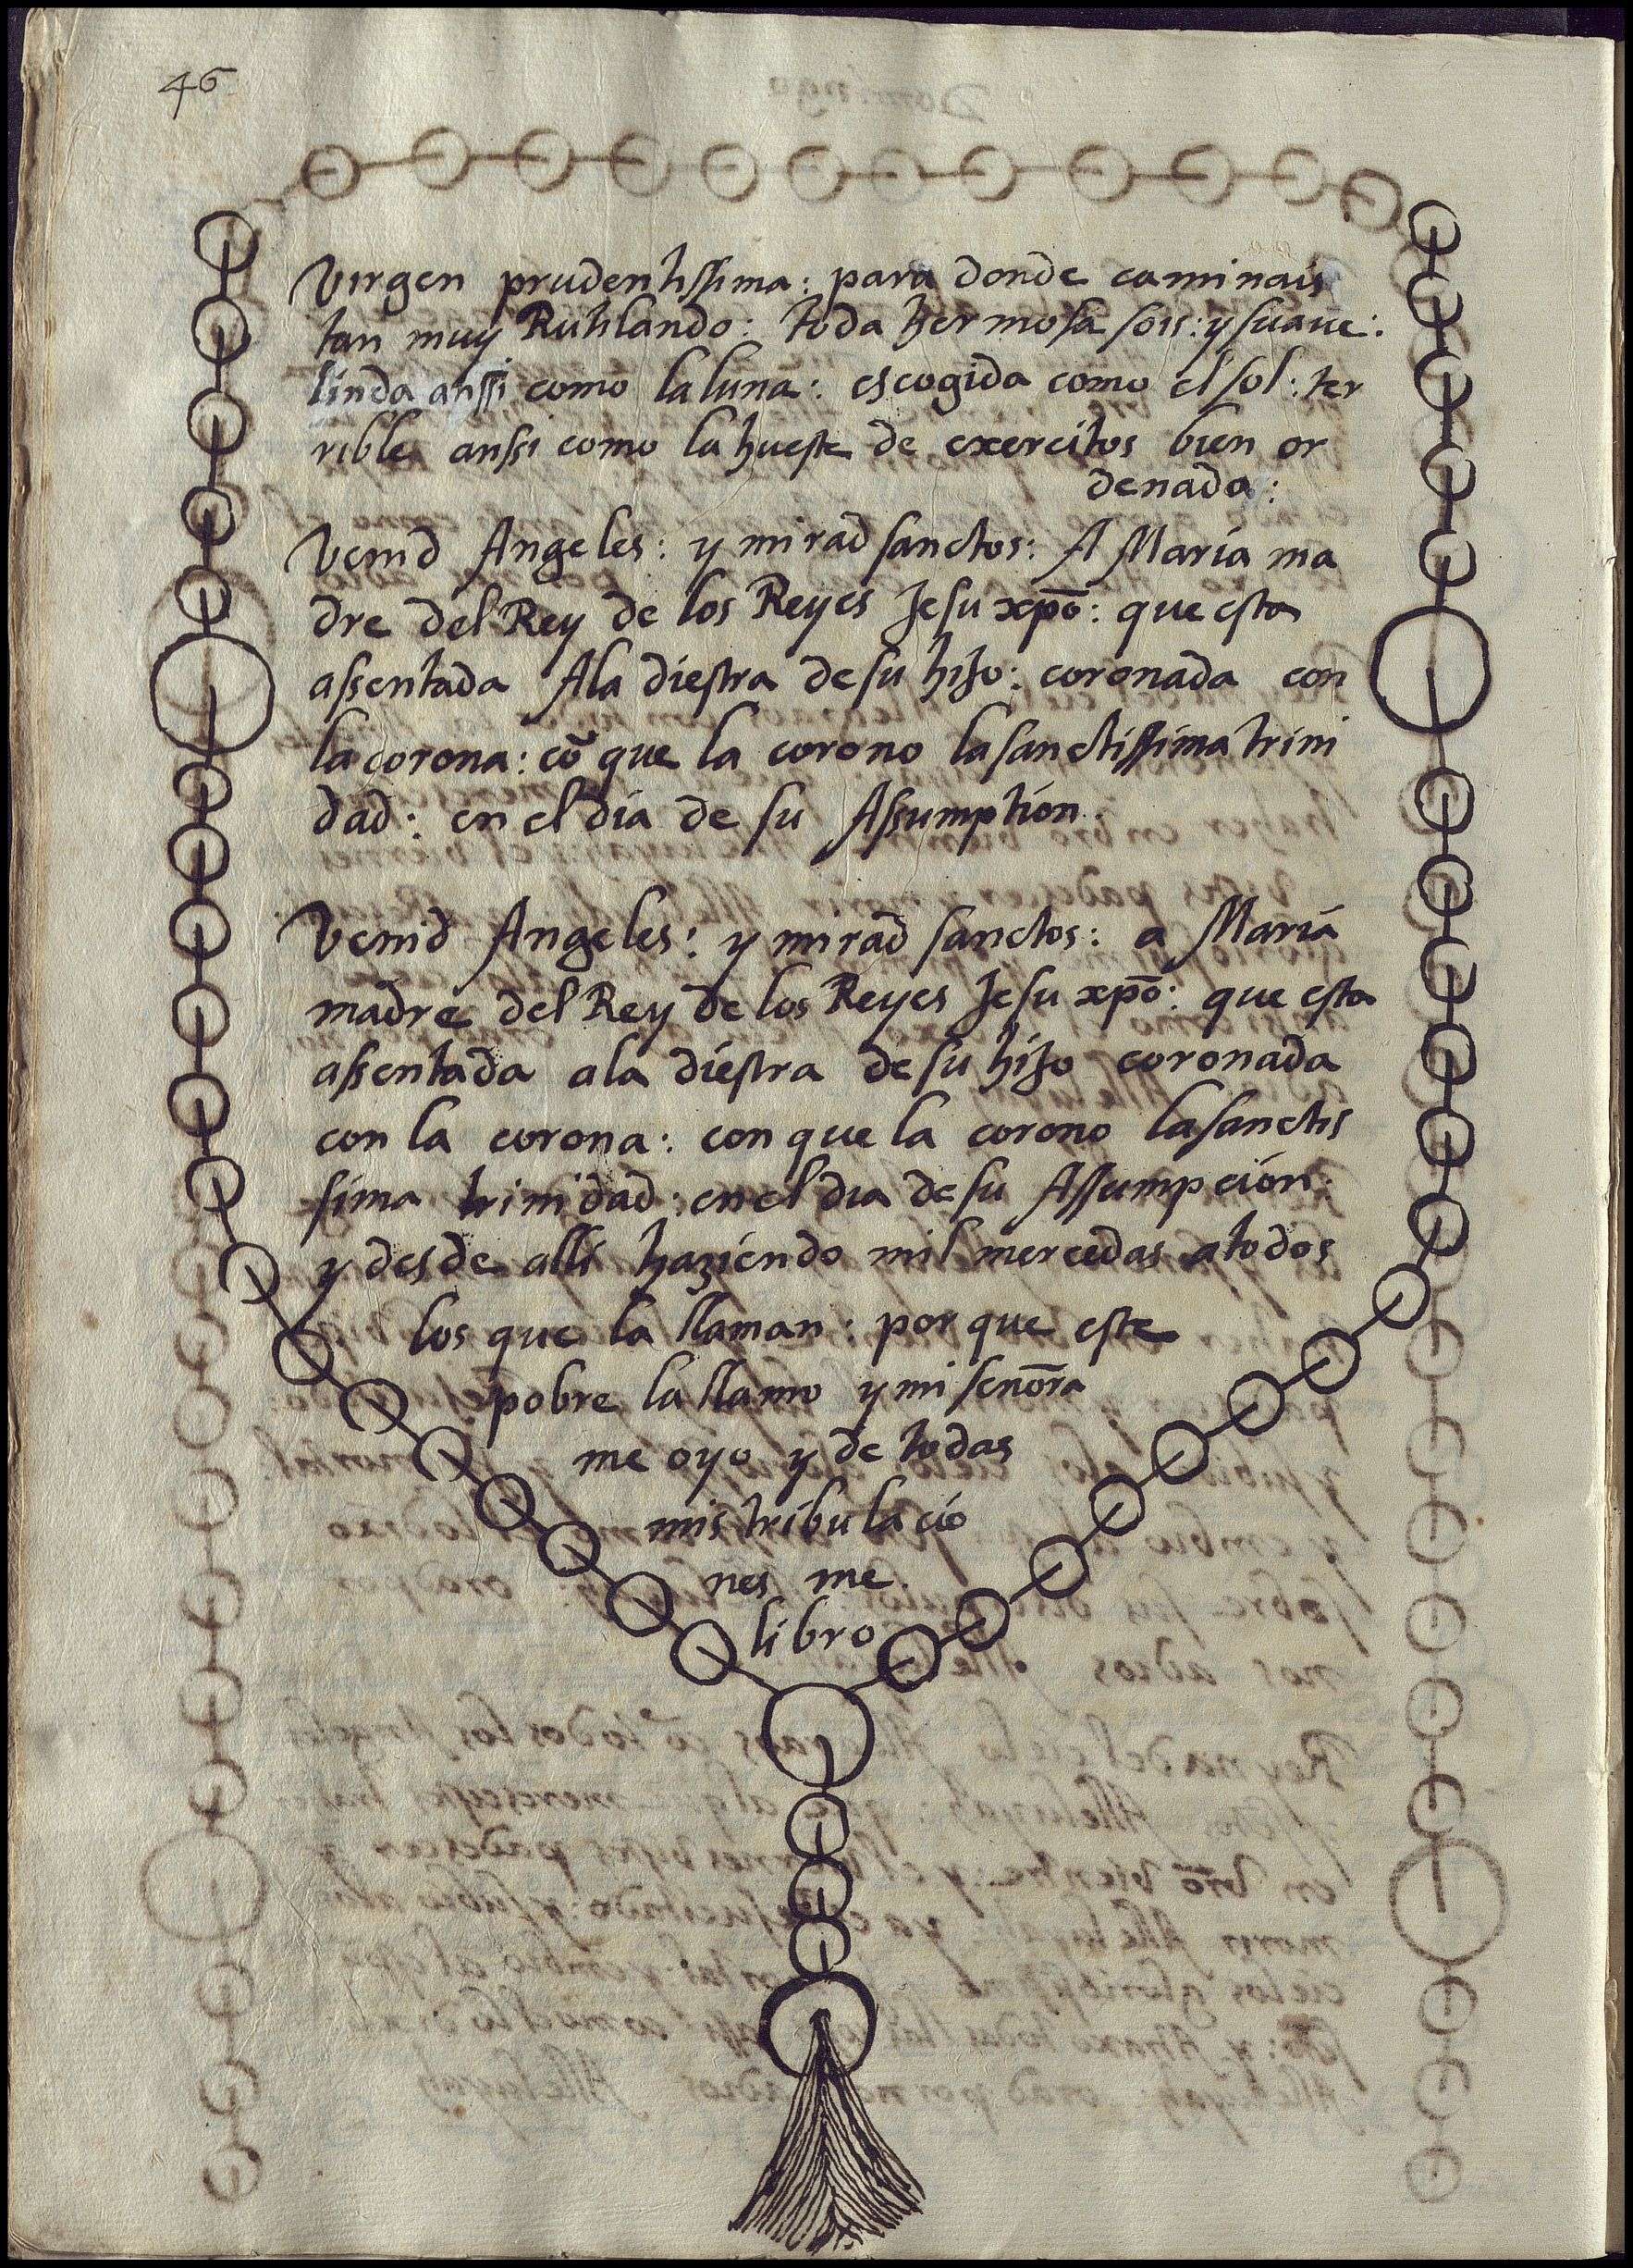 46
Virgen prudentissima: para donde caminais
tan muy Rutilando: toda hermosa sois: y suaue:
linda anssi como la luna: escogida como el sol: ter
rible anssi como la hueste de exercitos bien or
denada:
Venid Angeles: y mirad sanctos: A María ma
dre del Rey de los Reyes Jesu xpō: que esta
assentada A la diestra de su hijo: coronada con
la corona: cō que la corono la sanctissima trini
dad: en el día de su Assumptión.
Venid Angeles: y mirad sanctos: a María
madre del Rey de los Reyes Jesu xpō: que esta
assentada a la diestra de su hijo coronada
con la corona: con que la corono la sanctis
sima trinidad: en el dia de su Assumpción:
y desde alli haziendo mil mercedas a todos
los que la llaman: por que este
pobre la llamo y mi señora
me oyo y de todas
mis tribulació
nes me
libro